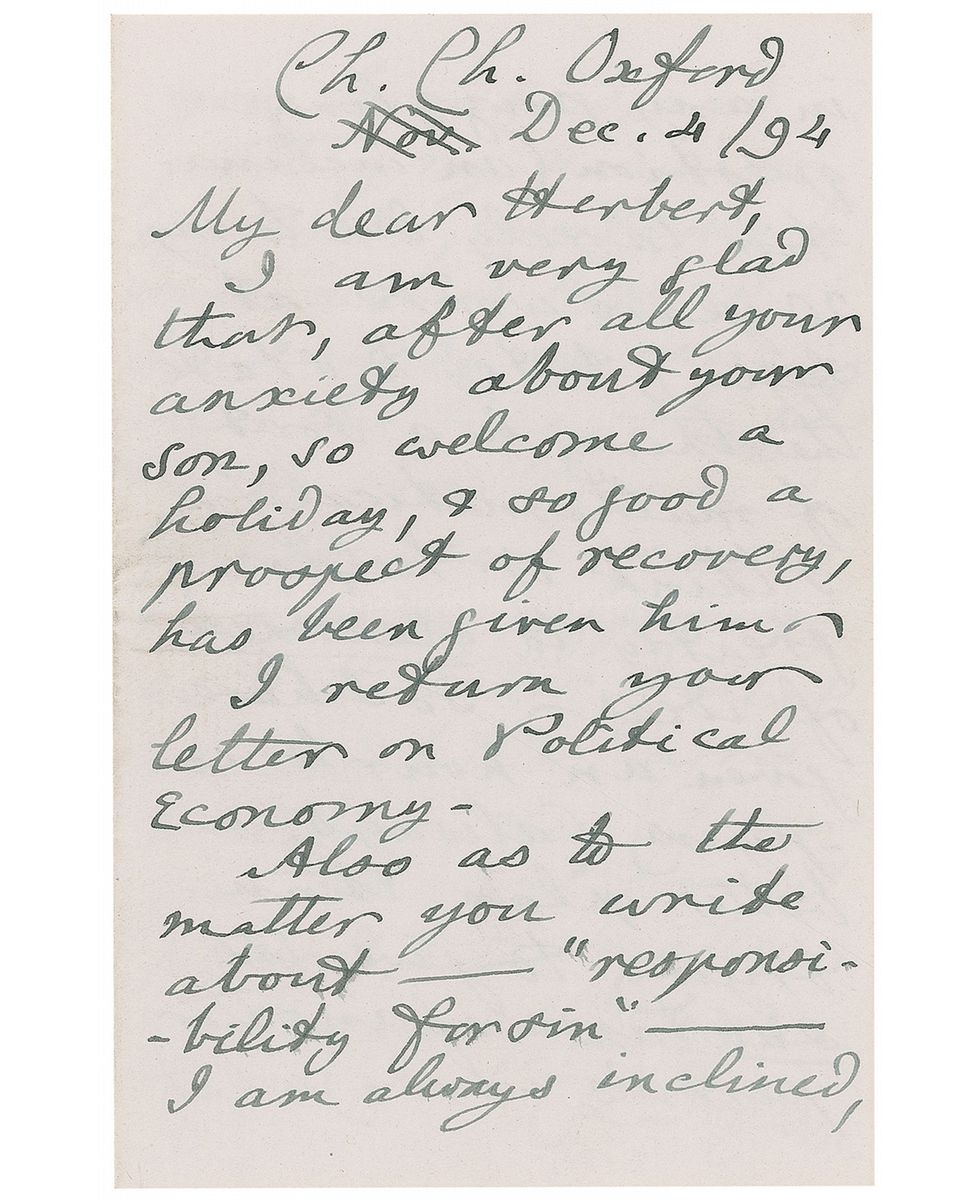 Ch. Ch. Oxford
Nov. Dec. 4/94
My dear Herbert,
I am very glad
that, after all your
anxiety about your
son, so welcome a
holiday, & so good a
prospect of recovery,
has been given him -
I return your
letter on Political
Economy -
Also as to the
matter you write
about — "responsi-
-bility for sin" —
I am always inclined,